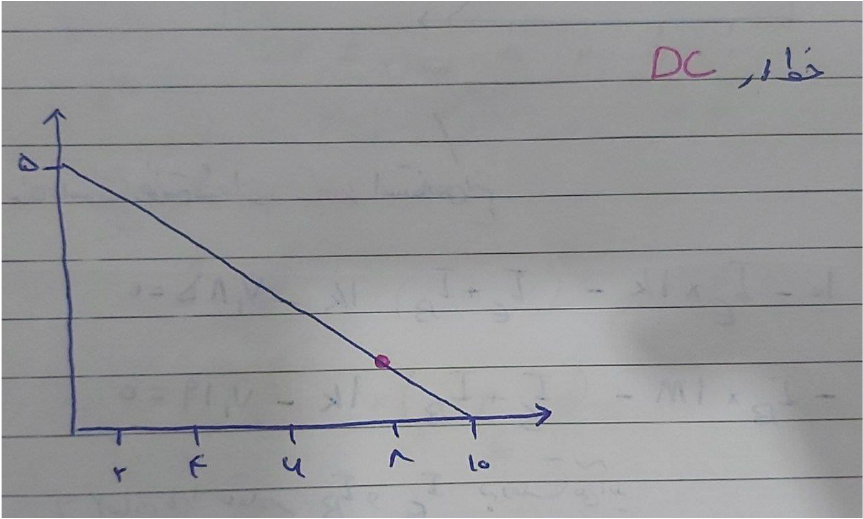 خط بار DC
۵
۲ ۴ ۶ ۸ ۱۰